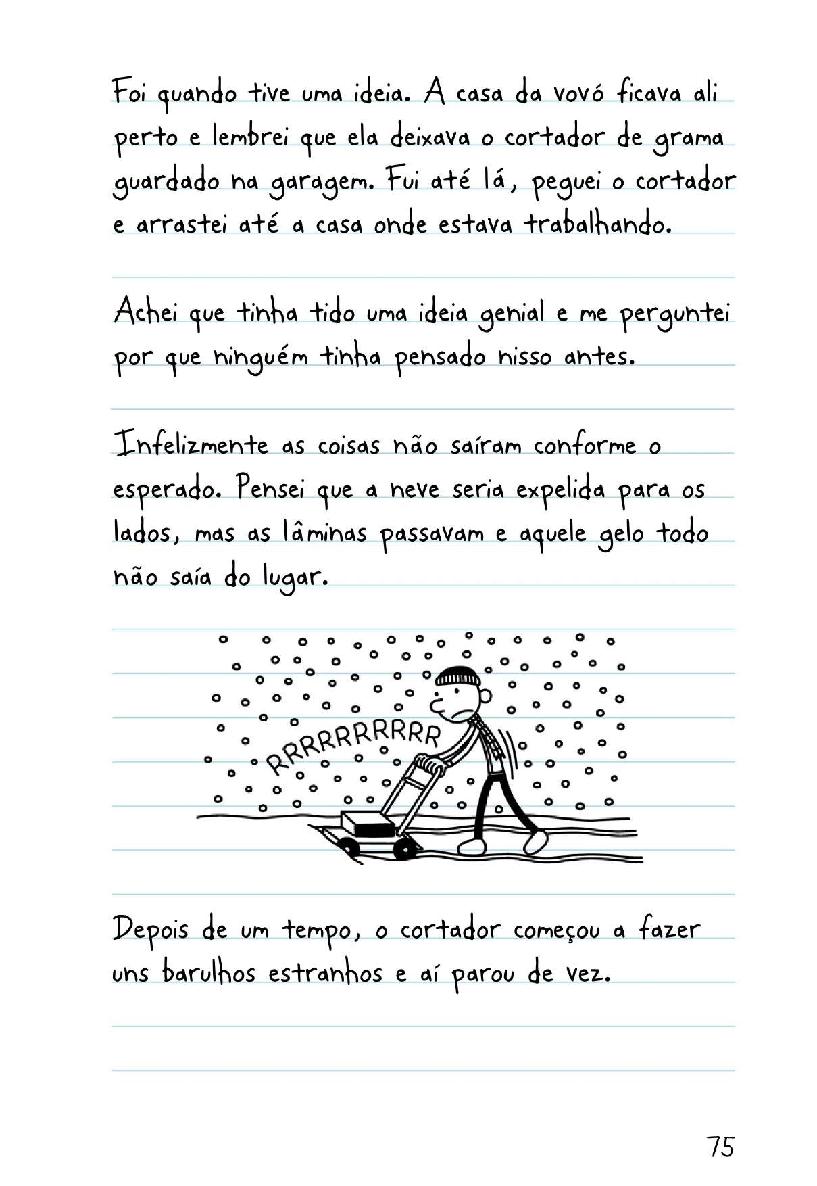 Foi quando tive uma ideia. A casa da vovó ficava ali
perto e lembrei que ela deixava o cortador de grama
guardado na garagem. Fui até lá, peguei o cortador
e arrastei até a casa onde estava trabalhando.
Achei que tinha tido uma ideia genial e me perguntei
por que ninguém tinha pensado nisso antes.
Infelizmente as coisas não saíram conforme o
esperado. Pensei que a neve seria expelida para os
lados, mas as lâminas passavam e aquele gelo todo
não saía do lugar.
RRRRRRRRRR
Depois de um tempo, o cortador começou a fazer
uns barulhos estranhos e aí parou de vez.
75